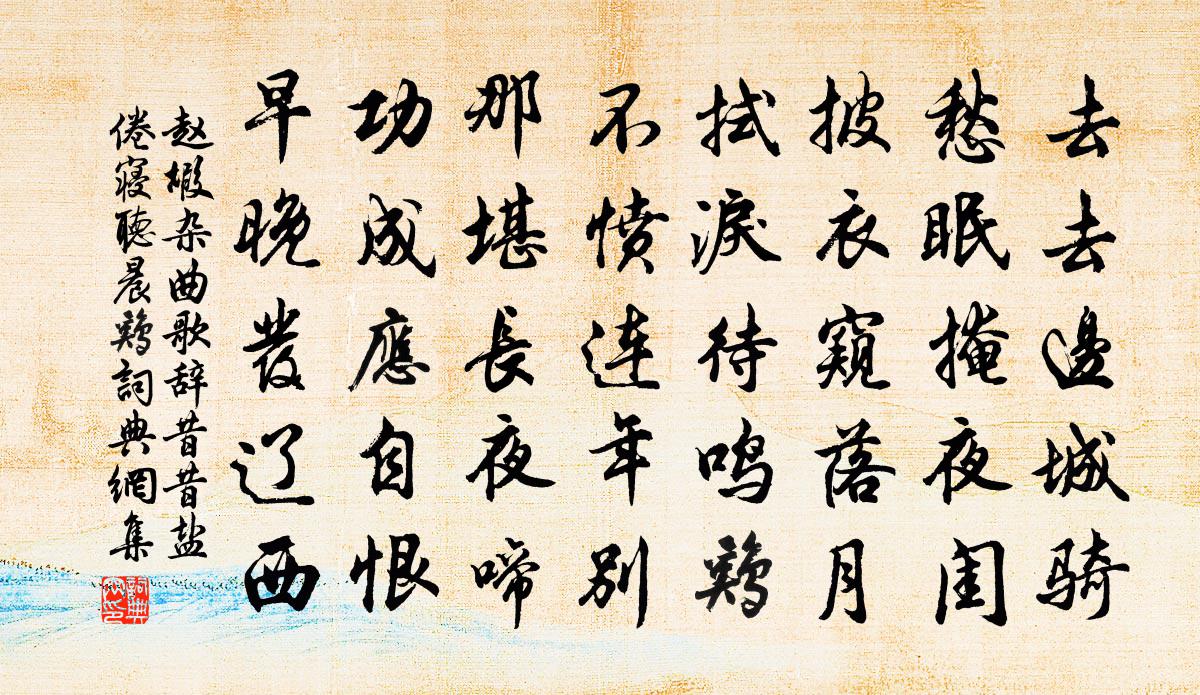 去去邊城骑
愁眠掩夜闺
披衣窺落月
拭淚待鸣鶏
不愤连年别
那堪長夜啼
功成應自恨
早晚發辽西
赵嘏杂曲歌辞昔昔盐
倦寝聴晨鶏詞典網集